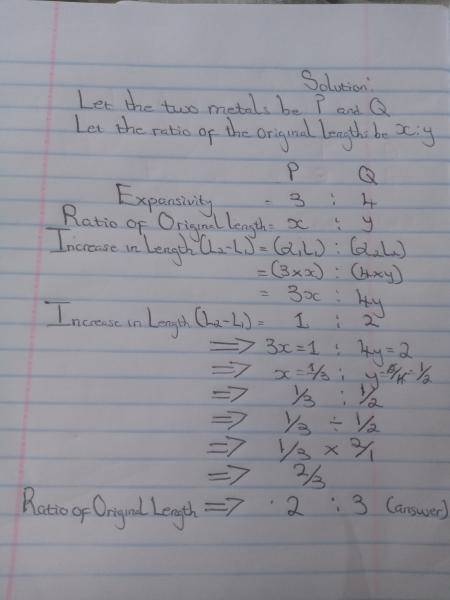 Solution:
Let the two metals be P and Q
Let the ratio of the original lengths be x:y
P Q
Expansivity = 3 : 4
Ratio of Original Length = x : y
Increase in Length (L₂-L₁) = (α₁L₁) : (α₂L₂)
= (3×x) : (4×y)
= 3x : 4y
Increase in Length (L₂-L₁) = 1 : 2
⇒ 3x=1 : 4y=2
⇒ x=1/3 ; y=2/4=1/2
⇒ 1/3 : 1/2
⇒ 1/3 ÷ 1/2
⇒ 1/3 × 2/1
⇒ 2/3
Ratio of Original Length ⇒ 2 : 3 (answer)